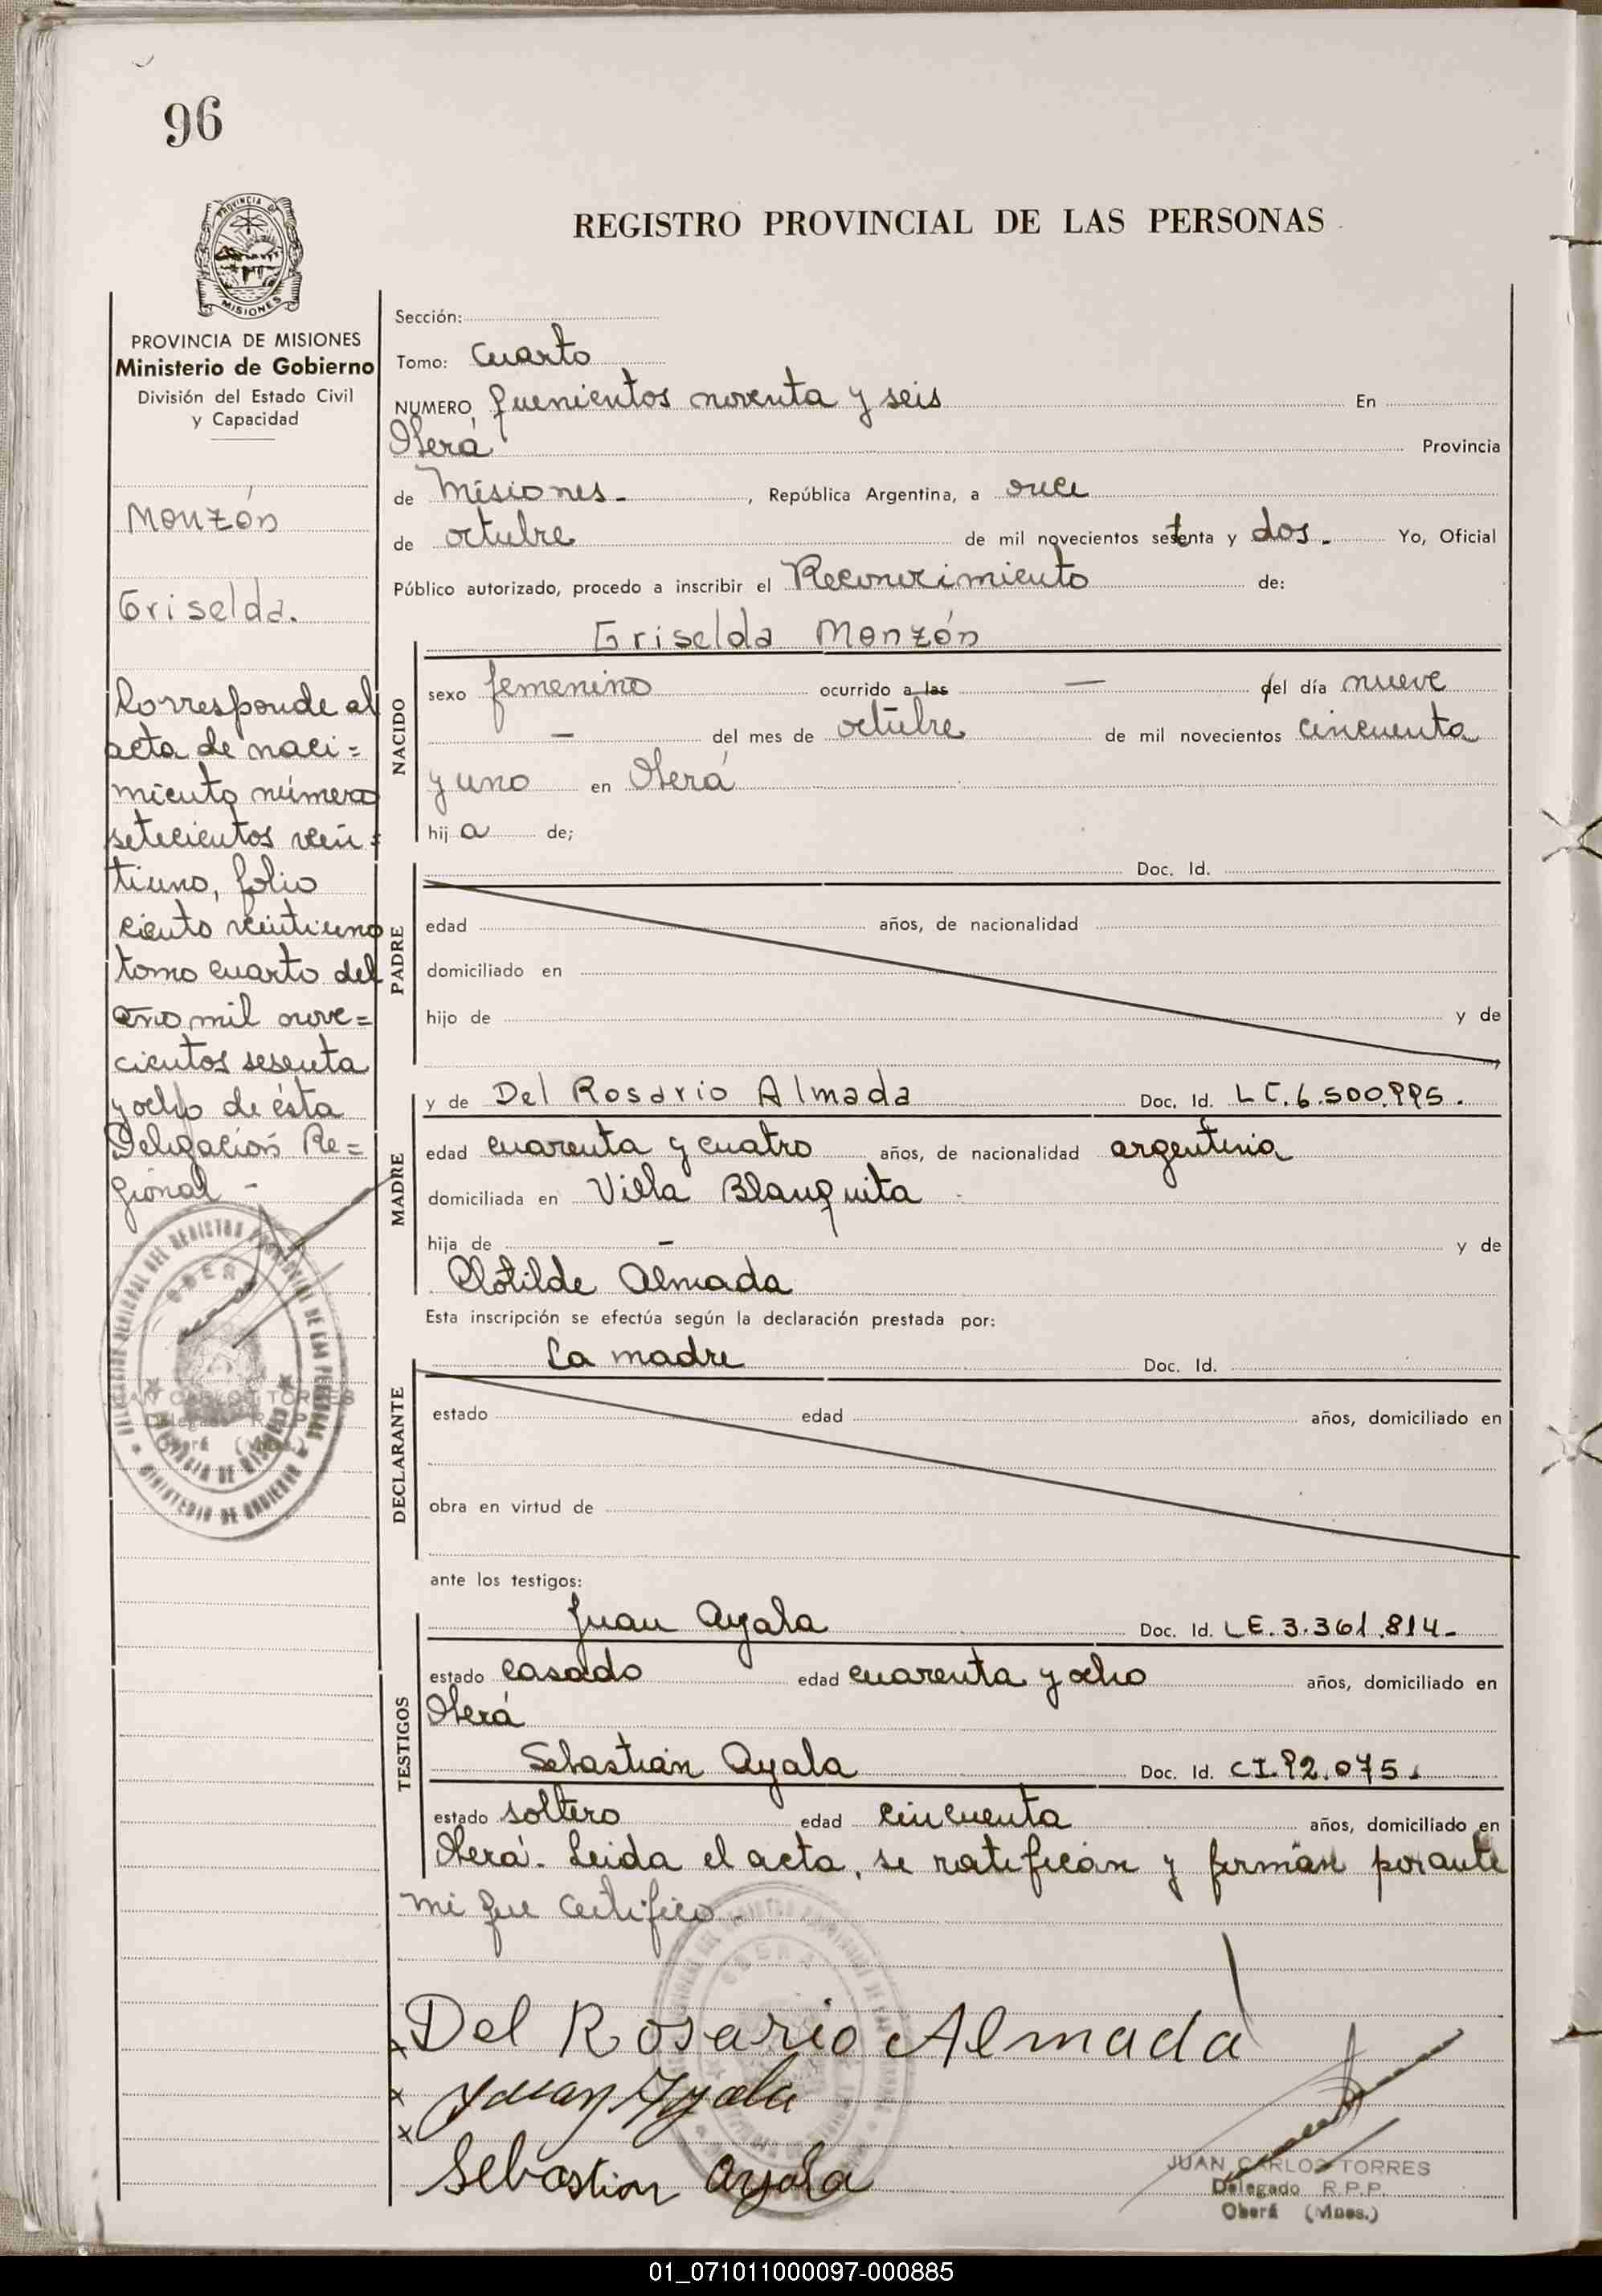 96
REGISTRO PROVINCIAL DE LAS PERSONAS
PROVINCIA DE MISIONES
PROVINCIA DE MISIONES
Ministerio de Gobierno
División del Estado Civil
y Capacidad
Monzón
Griselda.
Corresponde al
acta de naci=
miento número
setecientos vein=
tiuno, folio
ciento veintiuno
tomo cuarto del
año mil nove=
cientos sesenta
y ocho de ésta
Delegación Re=
gional -
JUAN CARLOS TORRES
Delegado R.P.P.
Oberá (Mnes.)
Sección:
Tomo: Cuarto
NUMERO, quinientos noventa y seis En
Oberá Provincia
de Misiones - , República Argentina, a once
de octubre de mil novecientos setenta y dos. Yo, Oficial
Público autorizado, procedo a inscribir el Reconocimiento de:
Griselda Monzón
NACIDO
sexo femenino ocurrido a las — del día nueve
— del mes de octubre de mil novecientos cincuenta
y uno en Oberá
hij a de;
PADRE
Doc. Id.
edad años, de nacionalidad
domiciliado en
hijo de y de
MADRE
y de Del Rosario Almada Doc. Id. LC. 6.500.995.
edad cuarenta y cuatro años, de nacionalidad argentina
domiciliada en Villa Blanquita
hija de — y de
Clotilde Almada
Esta inscripción se efectúa según la declaración prestada por:
DECLARANTE
La madre Doc. Id.
estado edad años, domiciliado en
obra en virtud de
ante los testigos:
TESTIGOS
Juan Ayala Doc. Id. LE. 3.361.814-
estado casado edad cuarenta y ocho años, domiciliado en
Oberá
Sebastián Ayala Doc. Id. CI. 92.075.
estado soltero edad cincuenta años, domiciliado en
Oberá. Leida el acta, se ratifican y firman por ante
mi que certifico.-
x Del Rosario Almada
x Juan Ayala
x Sebastian ayala
JUAN CARLOS TORRES
Delegado R.P.P.
Oberá (Mnes.)
01_071011000097-000885